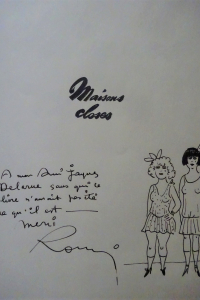 Maisons
closes
A mon ami Jacques
Delarue sans qui ce
livre n'aurait pas été
ce qu'il est —
merci
Romi